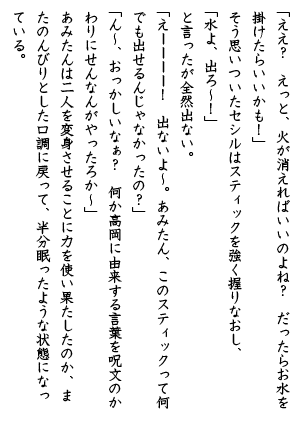 「ええ？　えっと、火が消えればいいのよね？　だったらお水を
掛けたらいいかも！」
そう思いついたセシルはスティックを強く握りなおし、
「水よ、出ろ～！」
と言ったが全然出ない。
「え―――！　出ないよ～。あみたん、このスティックって何
でも出せるんじゃなかったの？」
「ん～、おっかしいなぁ？　何か高岡に由来する言葉を呪文のか
わりにせんなんがやったろか～」
あみたんは二人を変身させることに力を使い果たしたのか、ま
たのんびりとした口調に戻って、半分眠ったような状態になっ
ている。